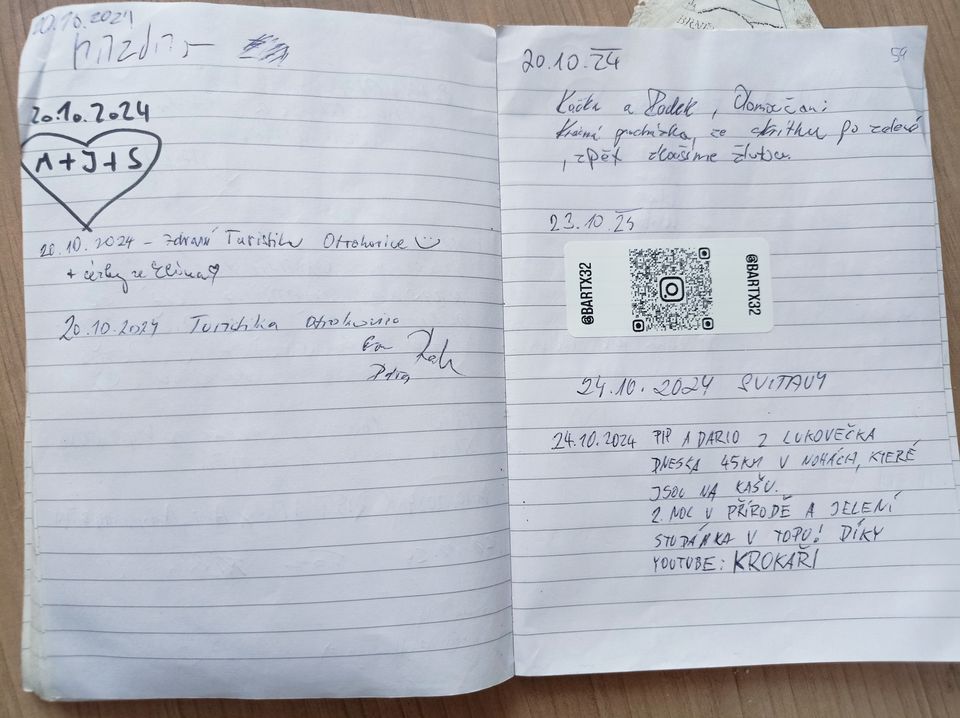 20.10.2024
20.10.2024
A+J+S
20.10.2024 - zdraví Turistika Otrokovice
+ ze Zlína
20.10.2024 Turistika Otrokovice
59
20.10.24
Kačka a Radek, Olomoučani
Krásná procházka, ze po zelené
, zpět zkusíme žlutou.
23.10.25
@BARTX32
@BARTX32
24.10.2024 SVITAVY
24.10.2024 PIP A DARIO Z LUKOVEČKA
DNESKA 45KM V NOHÁCH, KTERÉ
JSOU NA KAŠU.
2. NOC V PŘÍRODĚ A JELENÍ
STUDÁNKA V TOPU! DÍKY
YOUTUBE: KROKAŘI